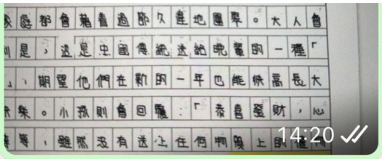 庭都會藉着過節久違地團聚。大人會
則是,這是中國傳統送給晚輩的一種「
」,期望他們在新的一年也能快高長大
。小孩則會回覆:「恭喜發財,心
等,雖然沒有送上任何物質上的
14:20